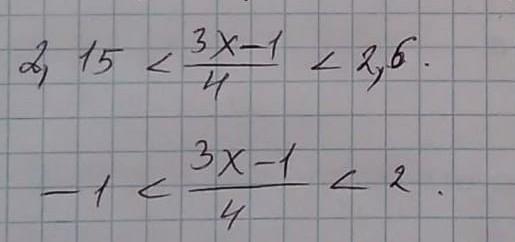 2,15 < \frac{3x-1}{4} < 2,6.
-1 < \frac{3x-1}{4} < 2.